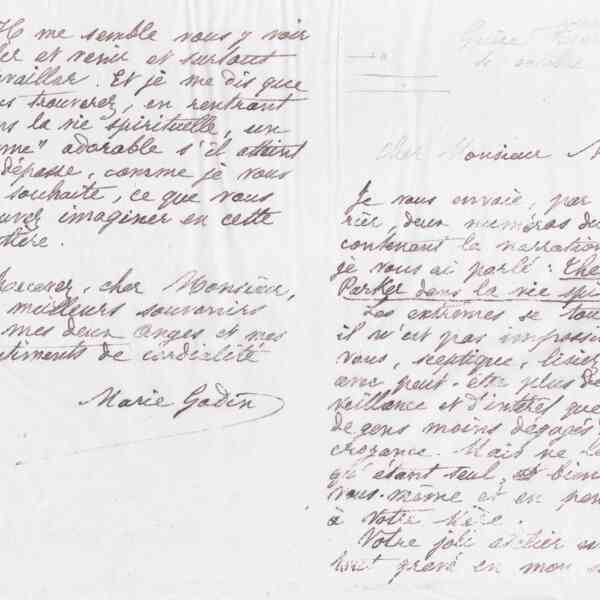 Il me semble vous y voir
et venir et surtout
vailler. Et je me dis que
trouverez, en rentrant
la vie spirituelle, un
me" adorable s'il atteint
dépasse, comme je vous
souhaite, ce que vous
uvez imaginer en cette
tière.
cher Monsieur,
meilleurs souvenirs
mes deux anges et mes
timents de cordialité
Marie Godin
octobre
Cher Monsieur
Je vous envoie, par
rier, deux numéros du
contenant la narration
je vous ai parlé : The
Parker dans la vie spi
Les extrêmes se tou
il n'est pas imposs
vous, septique, lisiez
avec peut-être plus de
veillance et d'intérêt que
de gens moins dégagés
croyance. Mais ne le
qu'étant seul, bien
vous-même et en pen
à votre Mère.
Votre joli atelier
gravé en mon